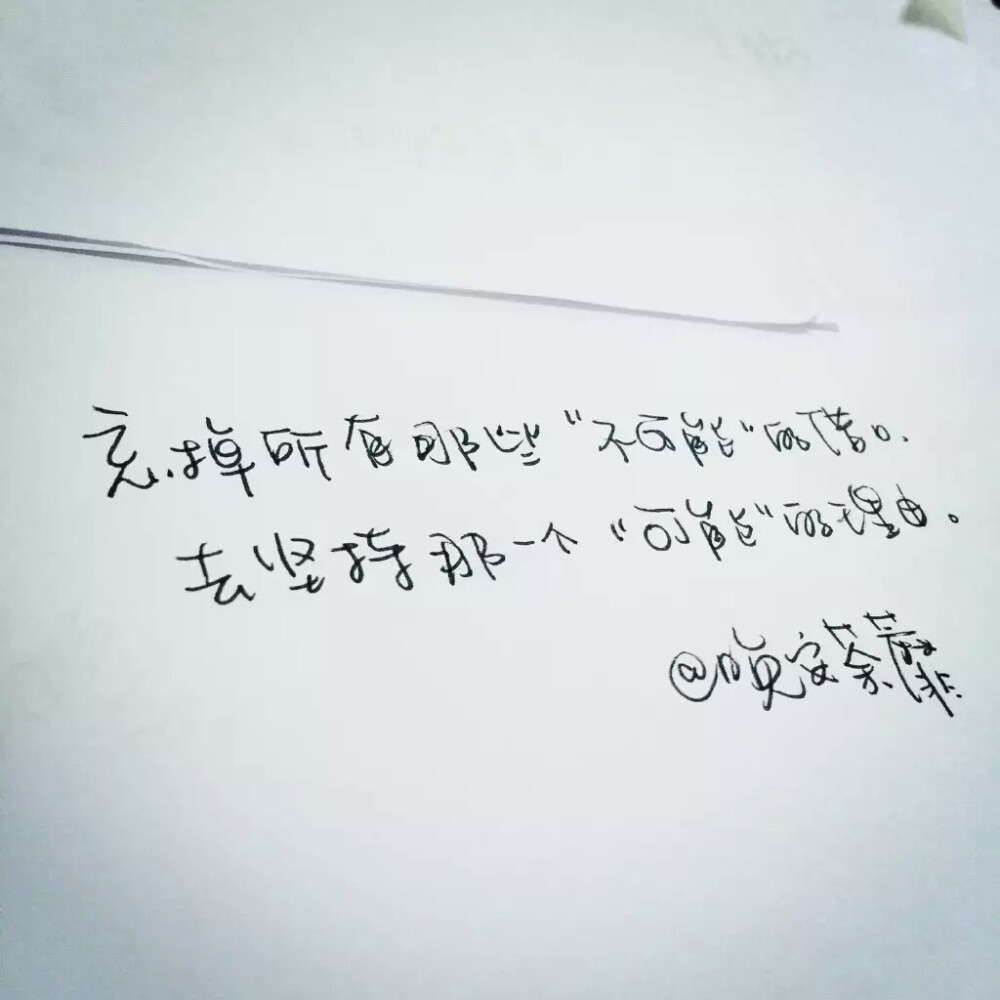 忘掉所有那些“不可能”的借口.
去坚持那一个“可能”的理由。
@晚安荼蘼